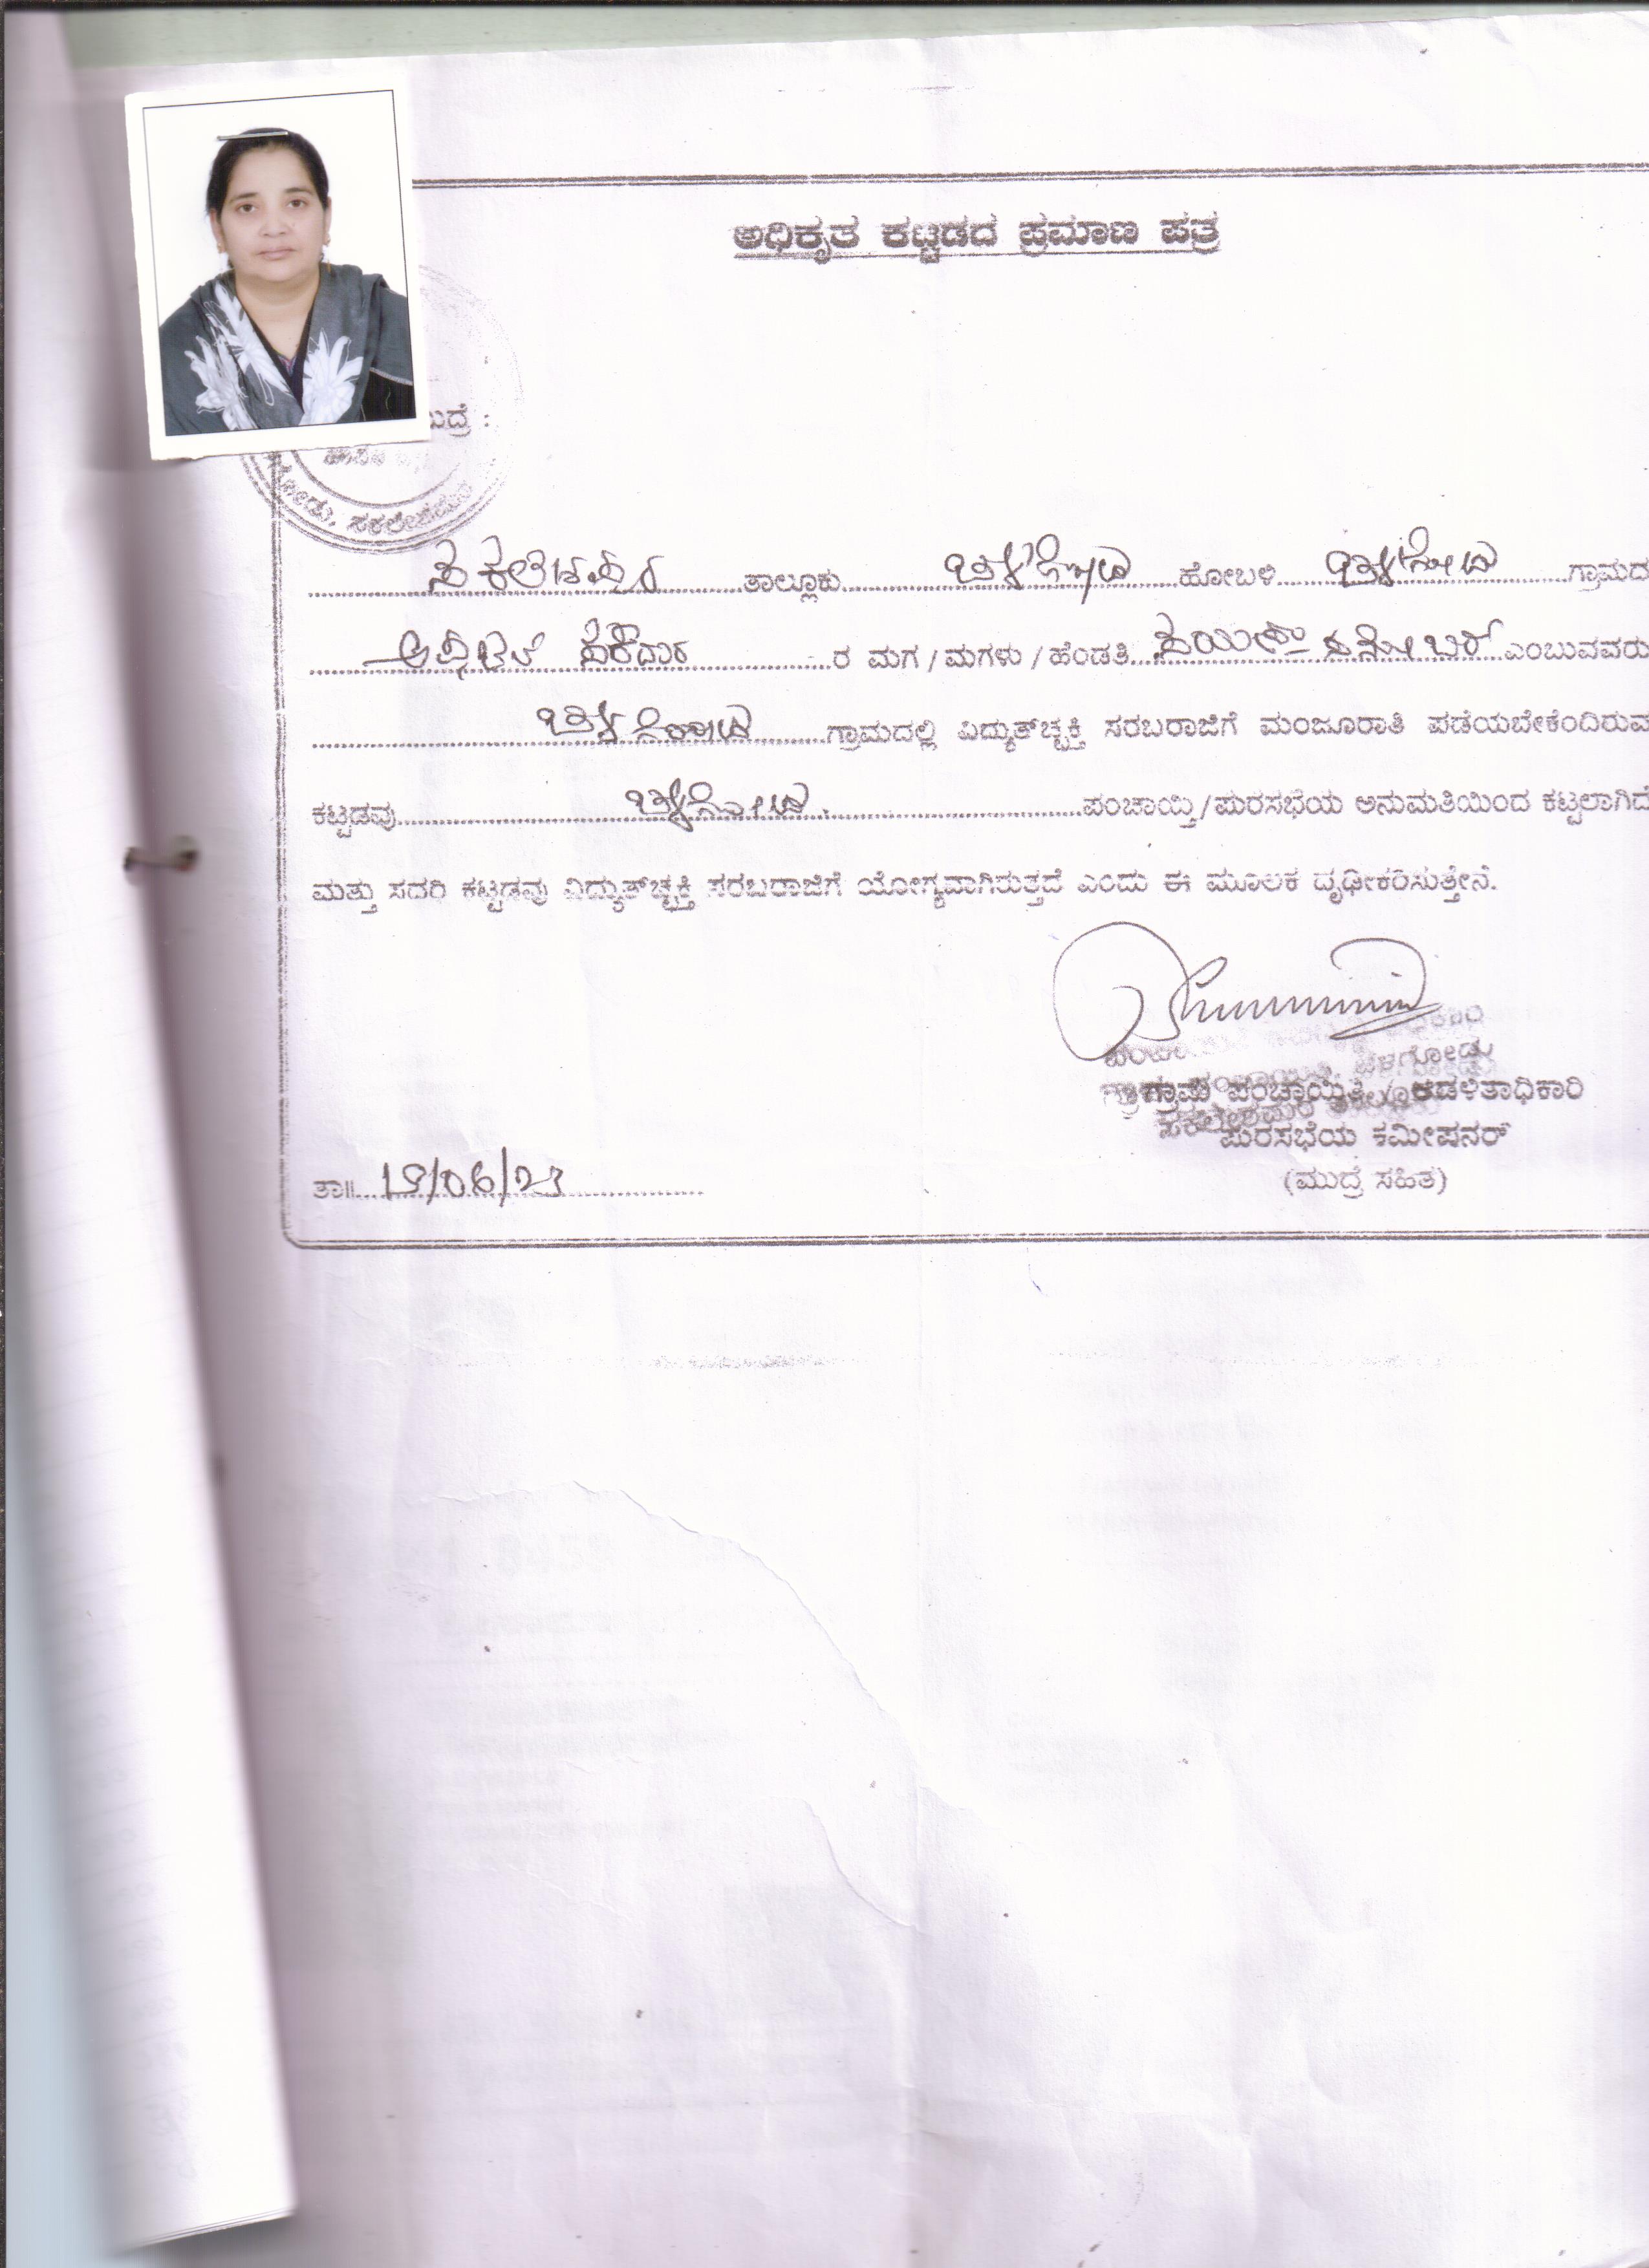 ಅಧಿಕೃತ ಕಟ್ಟಡದ ಪ್ರಮಾಣ ಪತ್ರ
ಮುದ್ರೆ :
ಸಕಲೇಶಪುರ
ಸಕಲೇಶಪುರ ತಾಲ್ಲೂಕು ಬೆಳಗೋಡು ಹೋಬಳಿ ಬೆಳಗೋಡು ಗ್ರಾಮದ
ರ ಮಗ / ಮಗಳು / ಹೆಂಡತಿ ಎಂಬುವವರು
ಬೆಳಗೋಡು ಗ್ರಾಮದಲ್ಲಿ ವಿದ್ಯುತ್‌ಚ್ಛಕ್ತಿ ಸರಬರಾಜಿಗೆ ಮಂಜೂರಾತಿ ಪಡೆಯಬೇಕೆಂದಿರುವ
ಕಟ್ಟಡವು ಬೆಳಗೋಡು ಪಂಚಾಯ್ತಿ/ಪುರಸಭೆಯ ಅನುಮತಿಯಿಂದ ಕಟ್ಟಲಾಗಿದೆ
ಮತ್ತು ಸದರಿ ಕಟ್ಟಡವು ವಿದ್ಯುತ್‌ಚ್ಛಕ್ತಿ ಸರಬರಾಜಿಗೆ ಯೋಗ್ಯವಾಗಿರುತ್ತದೆ ಎಂದು ಈ ಮೂಲಕ ದೃಢೀಕರಿಸುತ್ತೇನೆ.
ಬೆಳಗೋಡು
ಗ್ರಾಮ ಪಂಚಾಯ್ತಿ / ಆಡಳಿತಾಧಿಕಾರಿ
ಪುರಸಭೆಯ ಕಮೀಷನರ್
(ಮುದ್ರೆ ಸಹಿತ)
ತಾ॥ 19/06/23